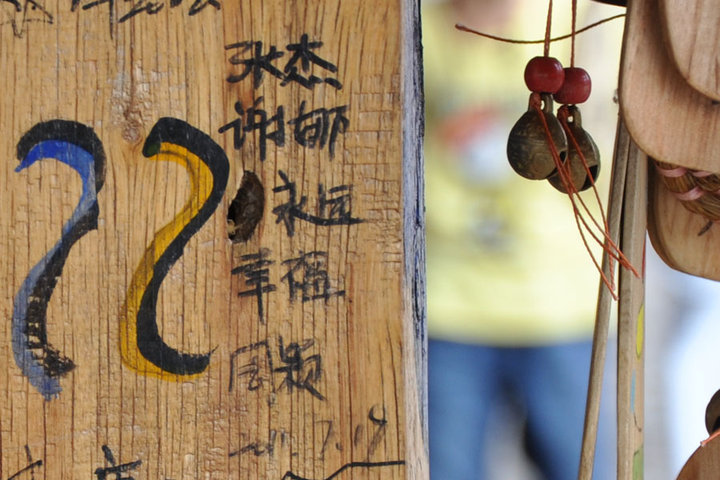 张杰
谢娜
永远
幸福
周颖
2011.7.19